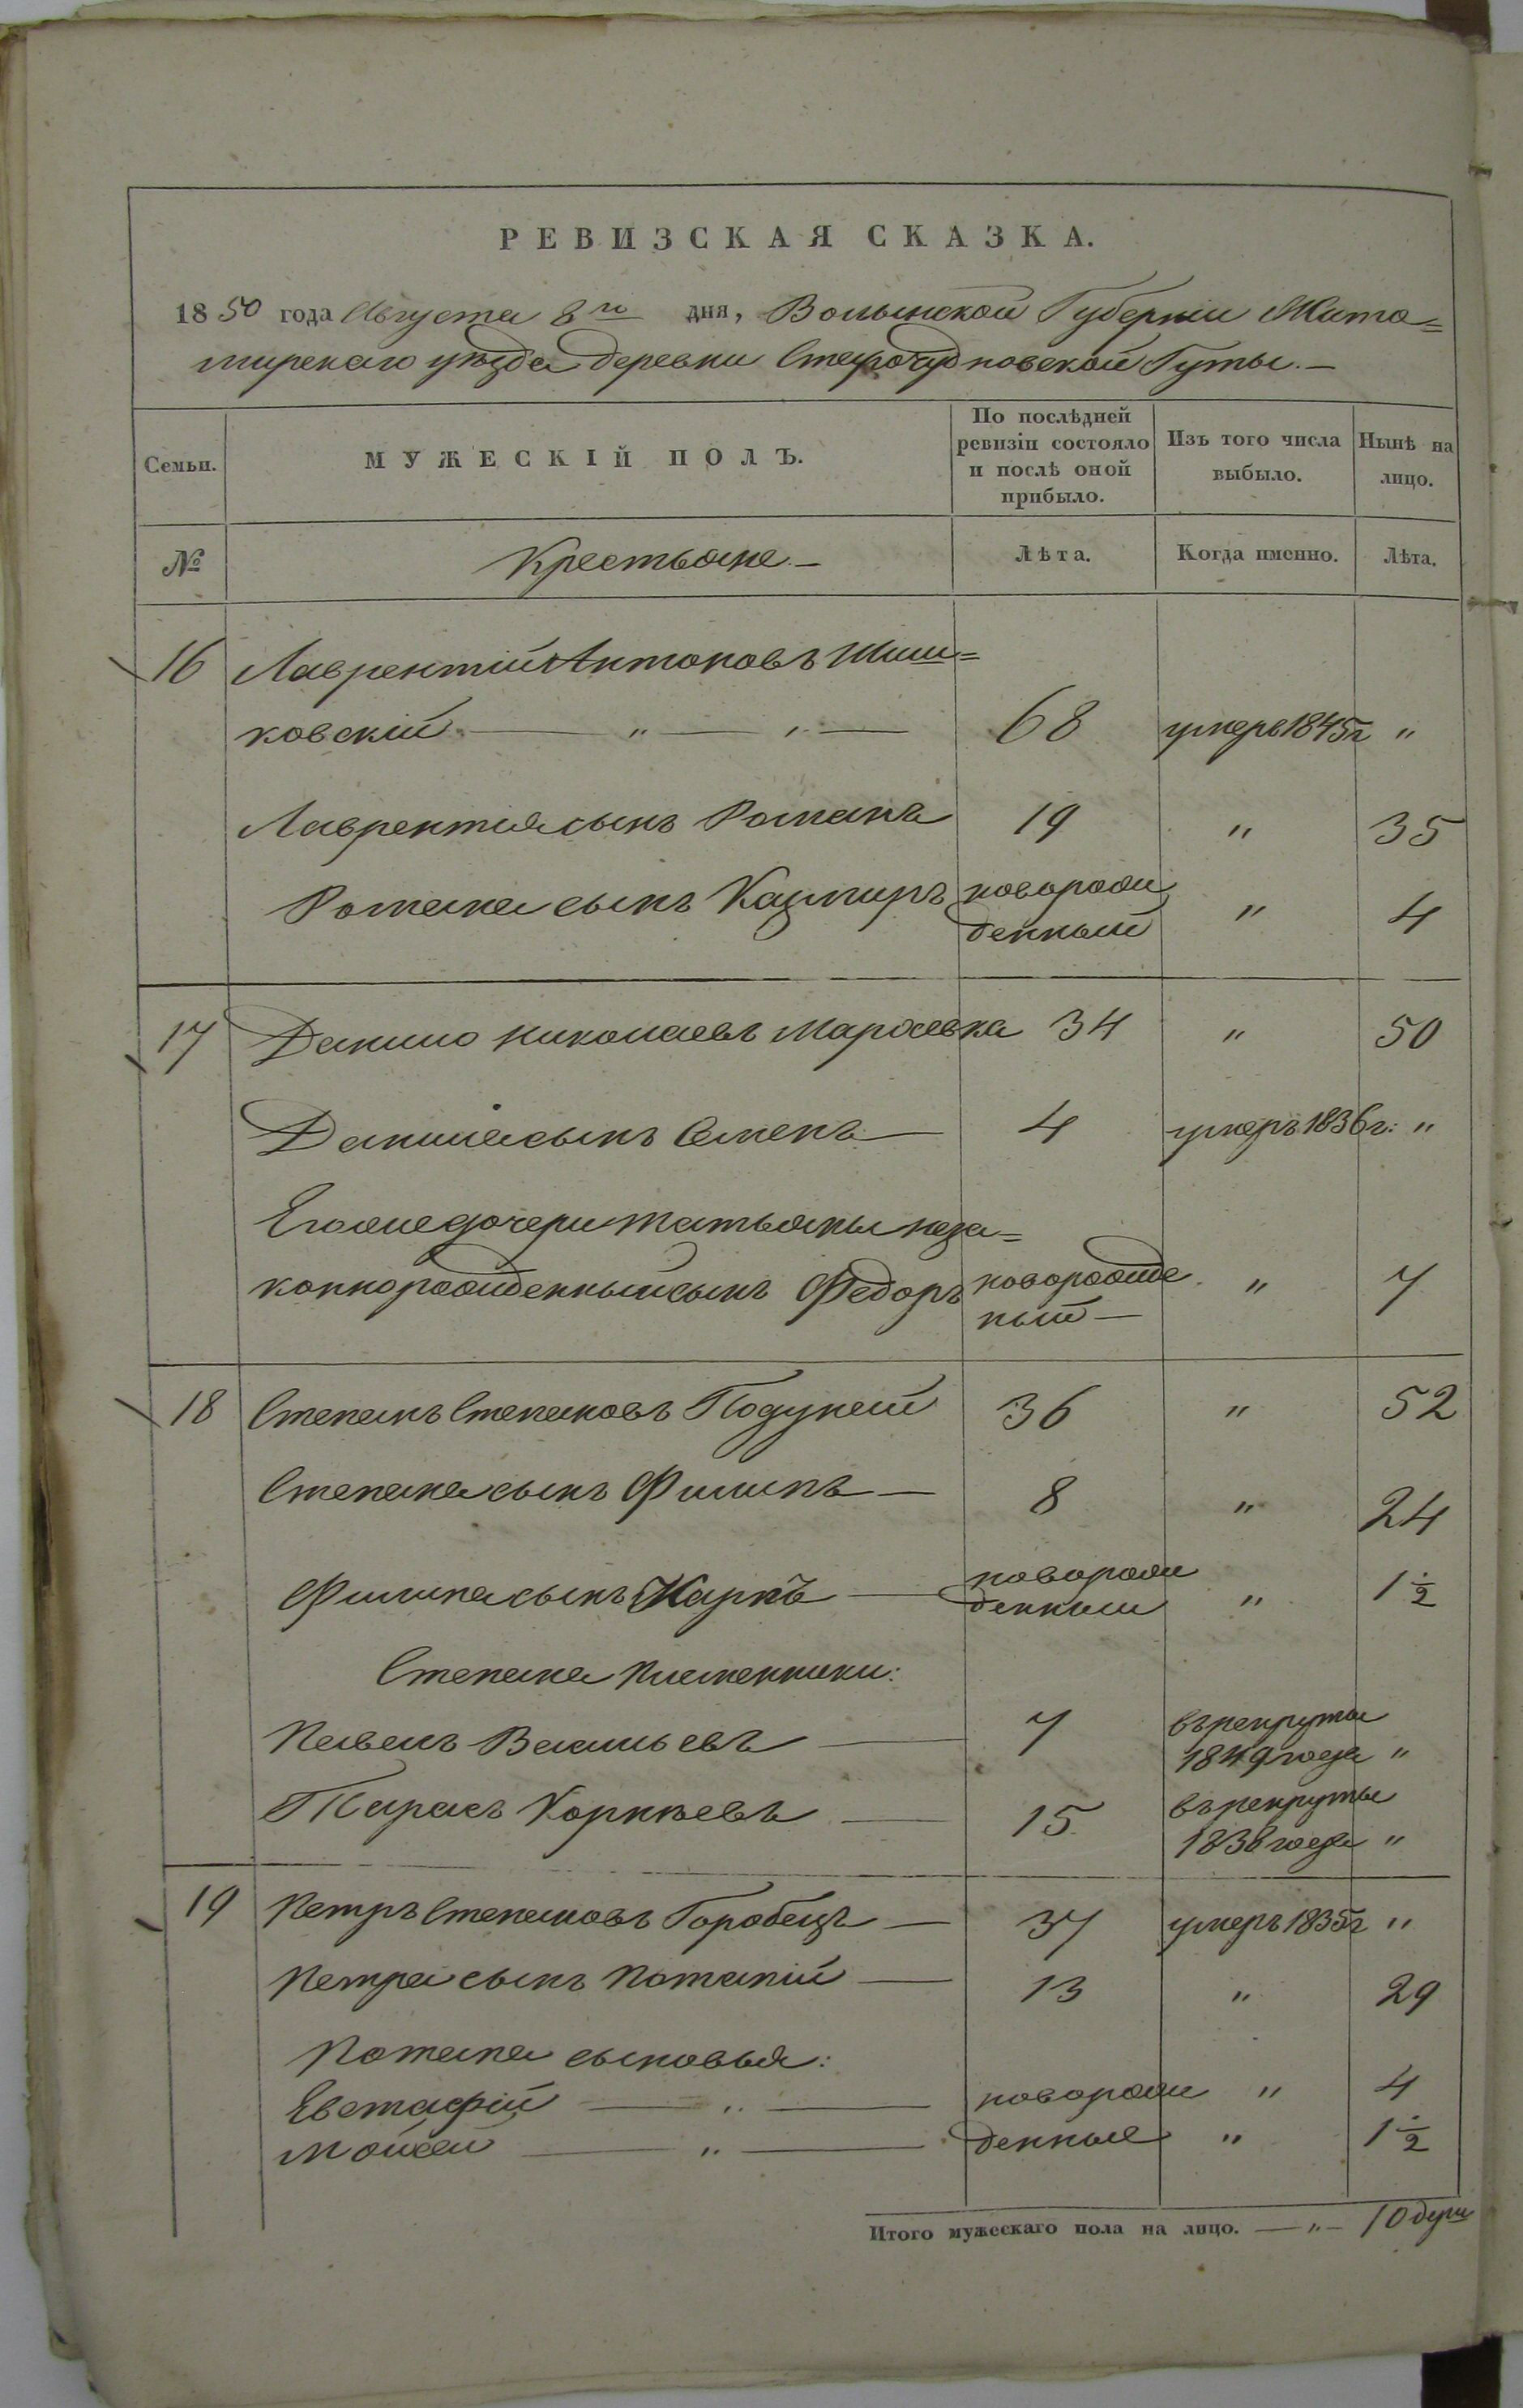 РЕВИЗСКАЯ СКАЗКА.
1850 года Августа 8го дня, Волынской Губерніи Жито=
мирскаго уѣзда деревни Старочудновской Гуты.—
Семьи. МУЖЕСКІЙ ПОЛЪ. По послѣдней ревизіи состояло и послѣ оной прибыло. Изъ того числа выбыло. Нынѣ на лицо.
№ Крестьяне.— Лѣта. Когда именно. Лѣта.
16 Лаврентій Антоновъ Шиш=
ковскій — " — " — 68 умеръ 1845г "
Лаврентія сынъ Романъ 19 " 35
Романа сынъ Казимиръ новорож
денный " 4
17 Данило Николаевъ 34 " 50
Данила сынъ Семенъ — 4 умеръ 1836г: "
Его же дочери Татьяны неза=
коннорожденный сынъ Федоръ новорожде
ный — " 7
18 Степанъ Степановъ 36 " 52
Степана сынъ Филипъ — 8 " 24
Филипа сынъ Карпъ — новорож
денный " 1 1/2
Степана племенники:
Павелъ Васильевъ — 7 въ рекруты
1849 года "
Тарасъ Корнѣевъ — 15 въ рекруты
1838 года "
19 Петръ Степановъ Горобецъ — 37 умеръ 1835г "
Петра сынъ Потапій — 13 " 29
Потапа сыновья:
Евстафій — " — новорож " 4
Мойсей — " — денные " 1 1/2
Итого мужескаго пола на лицо. — " — 10 душ